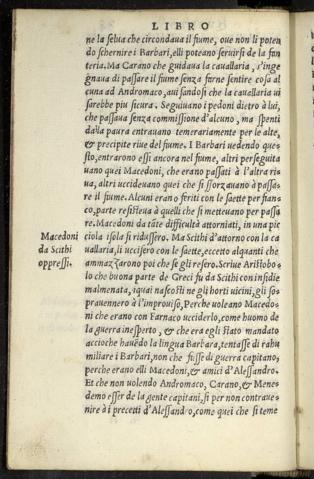 LIBRO
ne la selua che circondaua il fiume, oue non li poten
do schernire i Barbari, elli poteano seruirsi de la fan
teria. Ma Carano che guidaua la cauallaria, s'inge
gnaua di passare il fiume senza farne sentire cosa al
cuna ad Andromaco, auisandosi che la cauallaria ui
sarebbe piu sicura. Seguiuano i pedoni dietro à lui,
che passaua senza commissione d'alcuno, ma spenti
dalla paura entrauano temerariamente per le alte,
& precipite riue del fiume. I Barbari uedendo que-
sto, entrarono essi ancora nel fiume, altri perseguita
uano quei Macedoni, che erano passati à l'altra ri-
ua, altri uccideuano quei che si sforzauano à passa-
re il fiume. Alcuni erano feriti con le saette per fian-
co, parte resisteua à quelli che si metteuano per passa
re. Macedoni da tāte difficultà attorniati, in una pic
Macedoni
da Scithi
oppressi.
ciola isola si ridussero. Ma Scithi d'attorno con la ca
uallaria, li uccisero con le saette, eccetto alquanti che
ammazzarono poi che se gli resero. Scriue Aristobo-
lo che buona parte de Greci fu da Scithi con insidie
malmenata, iquai nascosti ne gli horti uicini, gli so-
prauennero à l'improuiso, Perche uoleano Macedo-
ni che erano con Farnaco ucciderlo, come huomo de
la guerra inesperto, & che era egli stato mandato
accioche hauēdo la lingua Barbara, tentasse di rahu
miliare i Barbari, non che fusse di guerra capitano,
perche erano elli Macedoni, & amici d'Alessandro.
Et che non uolendo Andromaco, Carano, & Mene-
demo esser de la gente capitani, si per non contraue-
nire à i precetti d'Alessandro, come quei che si teme